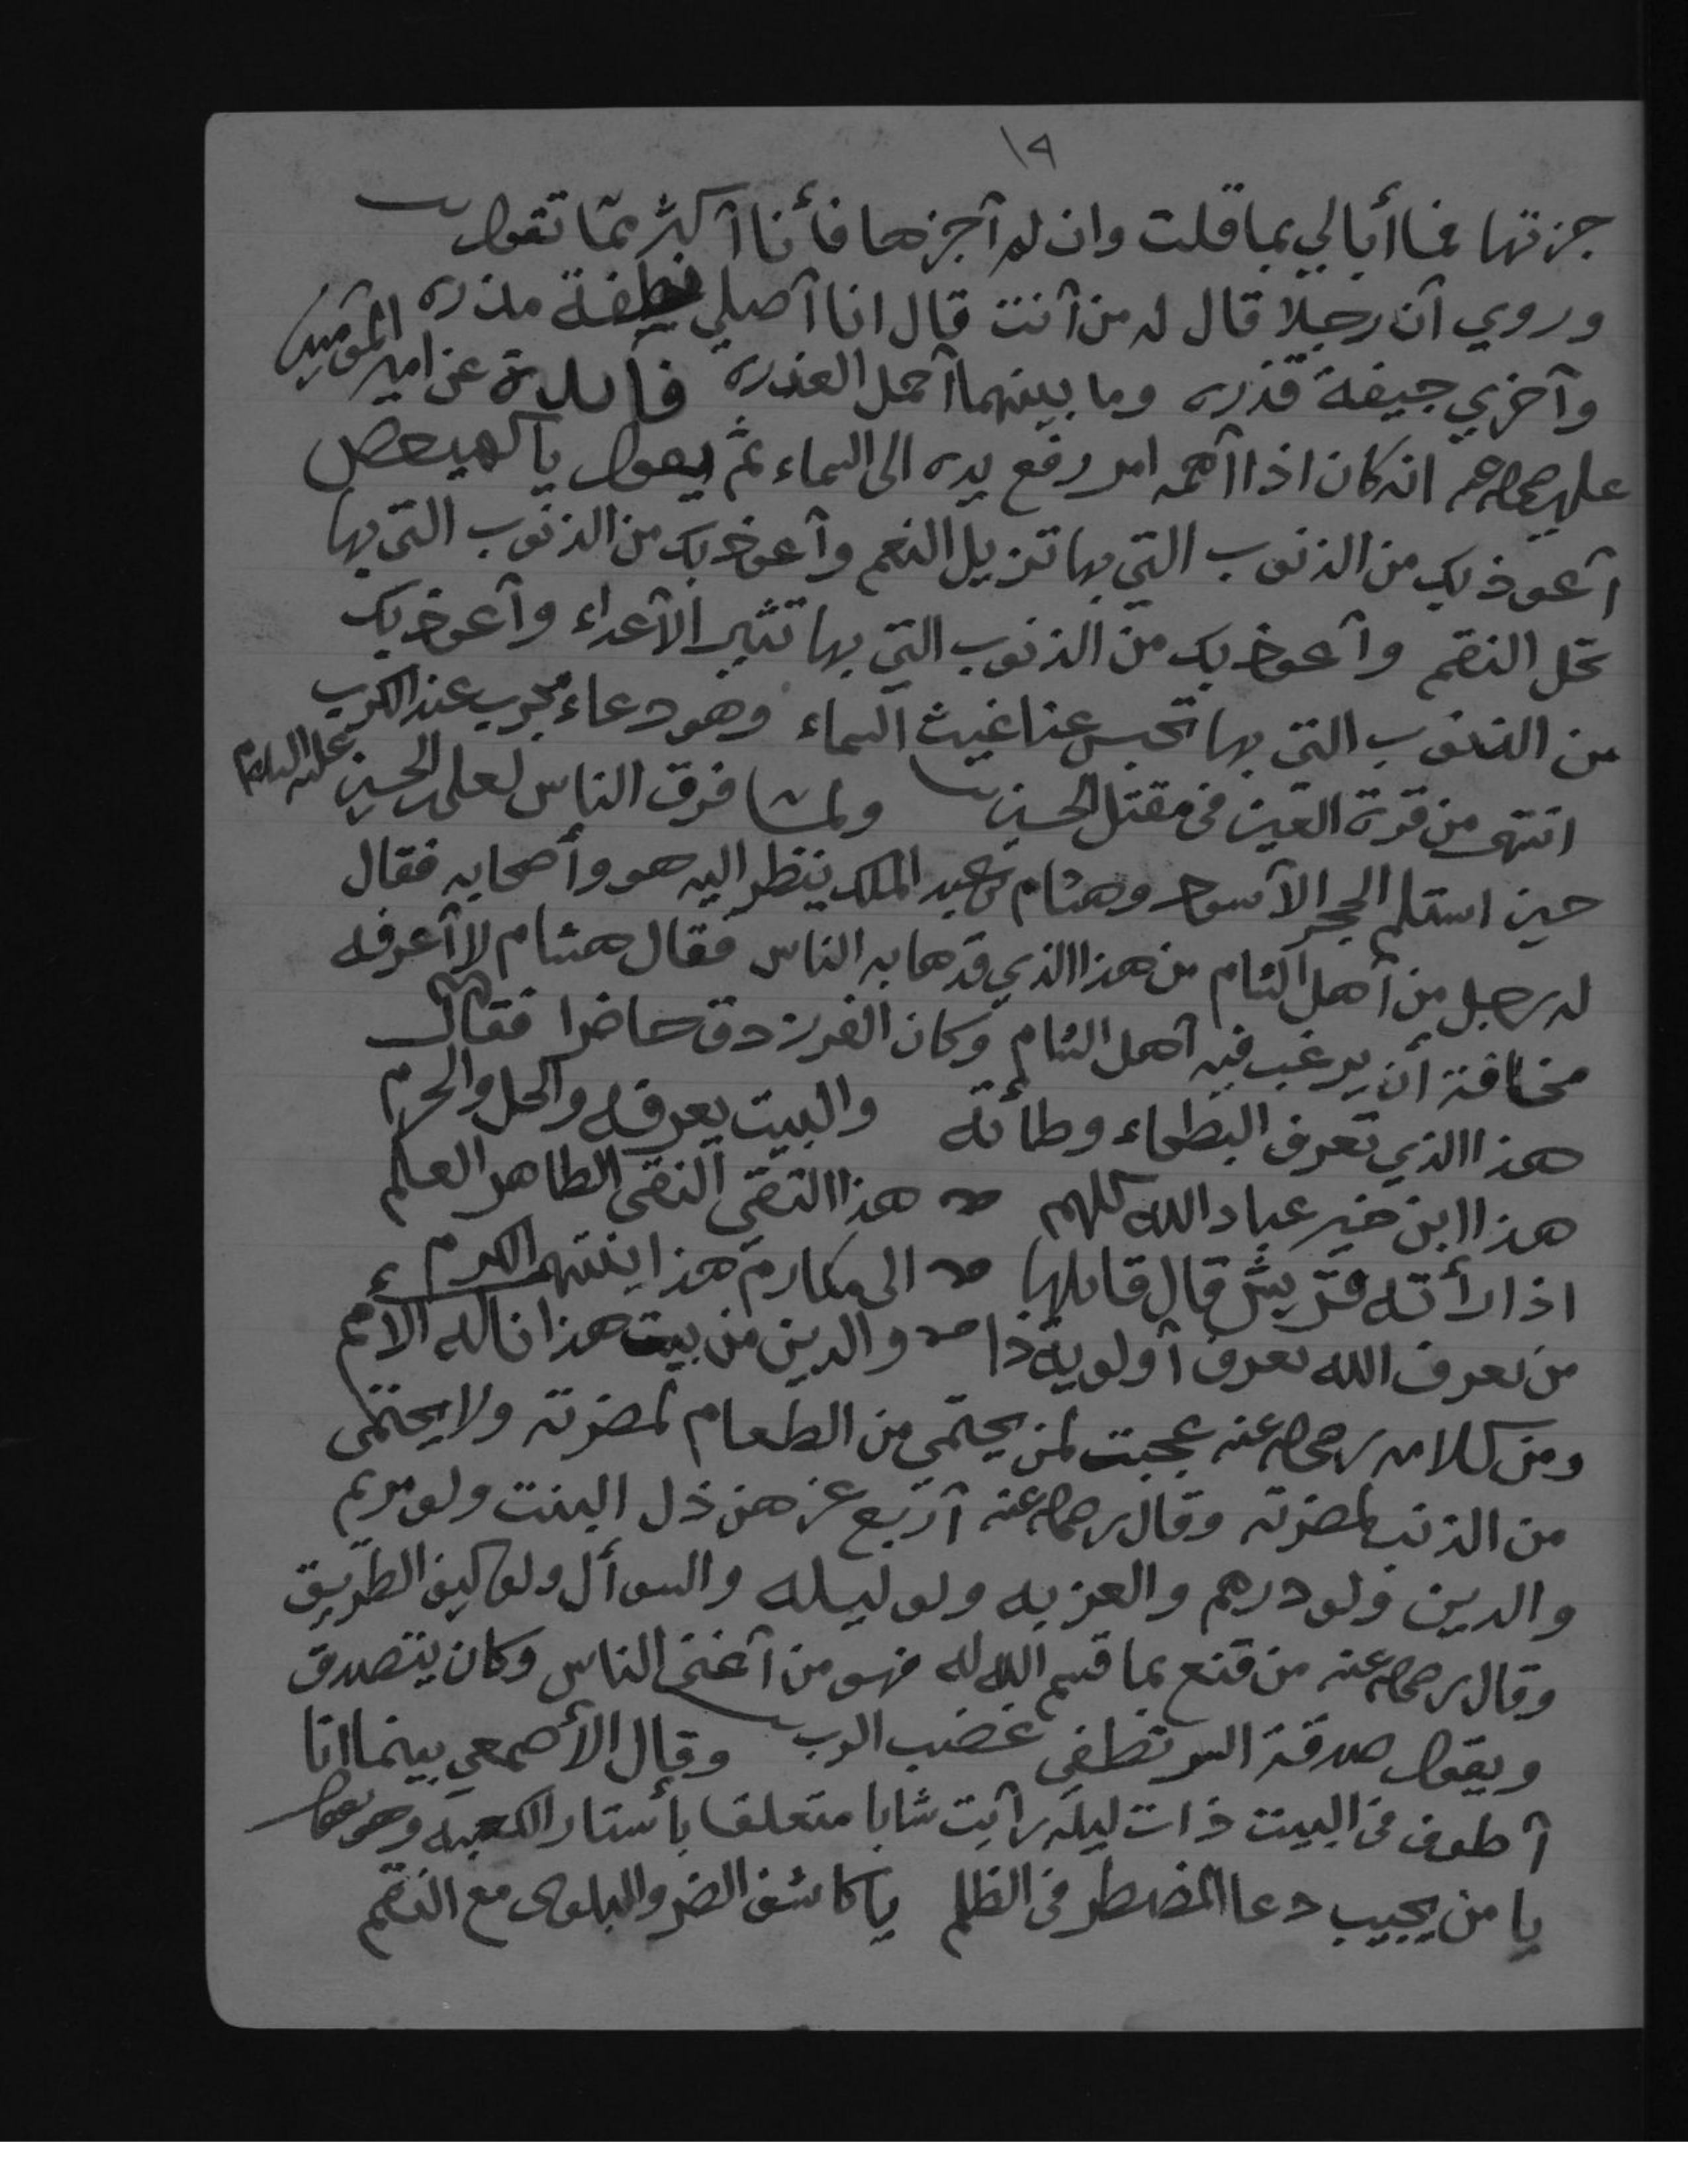 ١٩
جزتها فما أبالي بما قلت وان لم آجزها فأنا آكثر ممّا تقول
وروي آن رجلا قال له من آنت قال انا آصلي نطفة مذره
وآخري جيفة قذره وما بينهما آحمل العذره فائدة عن امير المؤمنين
علي انه كان اذا آهمه امر رفع يده الى السماء ثمّ يقول يا كهيعص
آعوذ بك من الذنوب التي بها تزيل النعم وآعوذ بك من الذنوب التي بها
تحل النقم وآعوذ بك من الذنوب التي بها تثير الآعداء وآعوذ بك
من الذنوب التي بها تحبس عنا غيث السماء وهو دعاء مجرب عند الكرب
انتهى من قرة العين في مقتل الحسين ولما فرق الناس لعلي بن الحسين عليه السلام
حين استلم الحجر الآسود وهشام بن عبد الملك ينظر اليه هو وأصحابه فقال
له رجل من آهل الشام من هذا الذي قد هابه الناس فقال هشام لا آعرفه
مخافة أن يرغب فيه آهل الشام وكان الفرزدق حاضرا فقال
هذا الذي تعرف البطحاء وطأته والبيت يعرفه والحل والحرم
هذا ابن خير عباد الله كلهم هذا التقي النقي الطاهر العلم
اذا رأته قريش قال قايلها الى مكارم هذا ينتهي الكرم
من يعرف الله يعرف آولوية ذا والدين من بيت هذا ناله الأمم
ومن كلامه رضي الله عنه عجبت لمن يحتمي من الطعام لمضرته ولا يحتمى
من الذنب لمضرته وقال رضي الله عنه آربع عزهن ذل البنت ولو مريم
والدين ولو درهم والغربه ولو ليله والسوأل ولو كيف الطريق
وقال رضي الله عنه من قنع بما قسم الله له فهو من آغنى الناس وكان يتصدق
ويقول صدقة السر تطفي غضب الرب وقال الأصمعي بينما انا
آطوف في البيت ذات ليلة رآيت شابا متعلقا بأستار الكعبه وهو يقول
يا من يجيب دعا المضطر في الظلم يا كاشف الضر والبلوى مع النقم